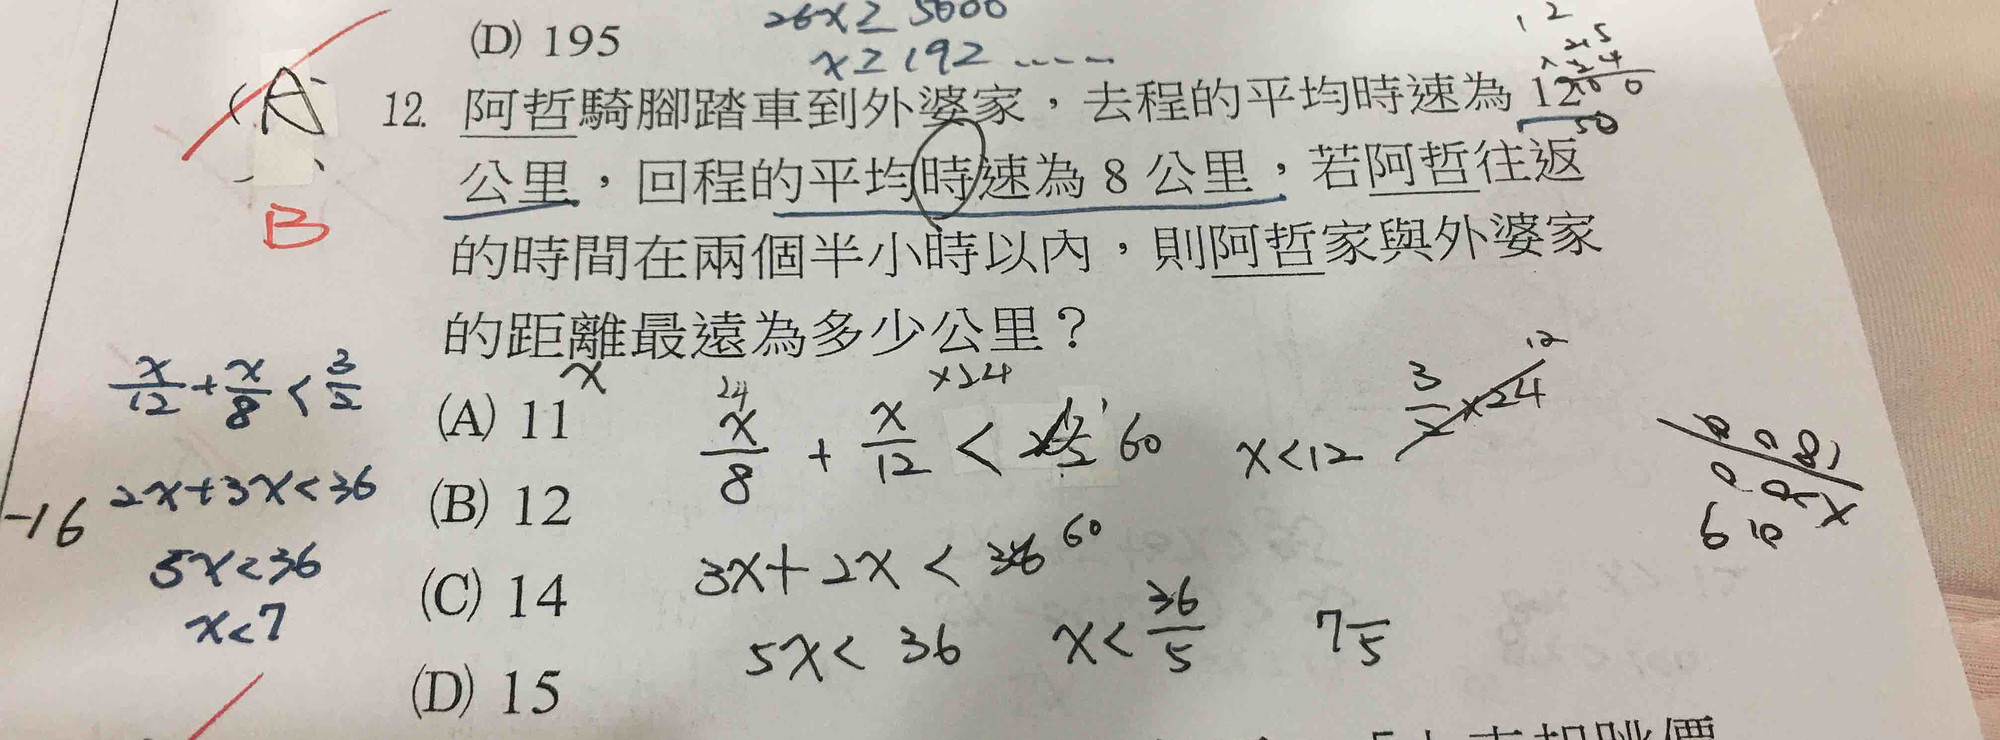 (D) 195
26x≥5000
x≥192……
(A)
B
12. 阿哲騎腳踏車到外婆家，去程的平均時速為 12
公里，回程的平均時速為 8 公里，若阿哲往返
的時間在兩個半小時以內，則阿哲家與外婆家
的距離最遠為多少公里？
x
(A) 11
(B) 12
(C) 14
(D) 15
x/12+x/8<3/2
2x+3x<36
5x<36
x<7
-16
24
×24
x/8 + x/12 <
60
x<12
3/2×24
12
3x+2x<36 60
5x<36
x<36/5